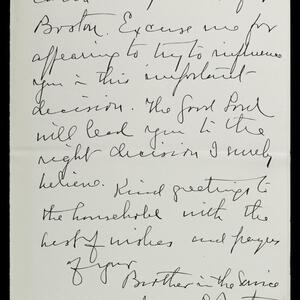 Boston. Excuse me for
appearing to try to influence
you in this important
decision. The Good Lord
will lead you to the
right decision I surely
believe. Kind greetings to
the household with the
best of wishes and prayers
of your
Brother in the Service